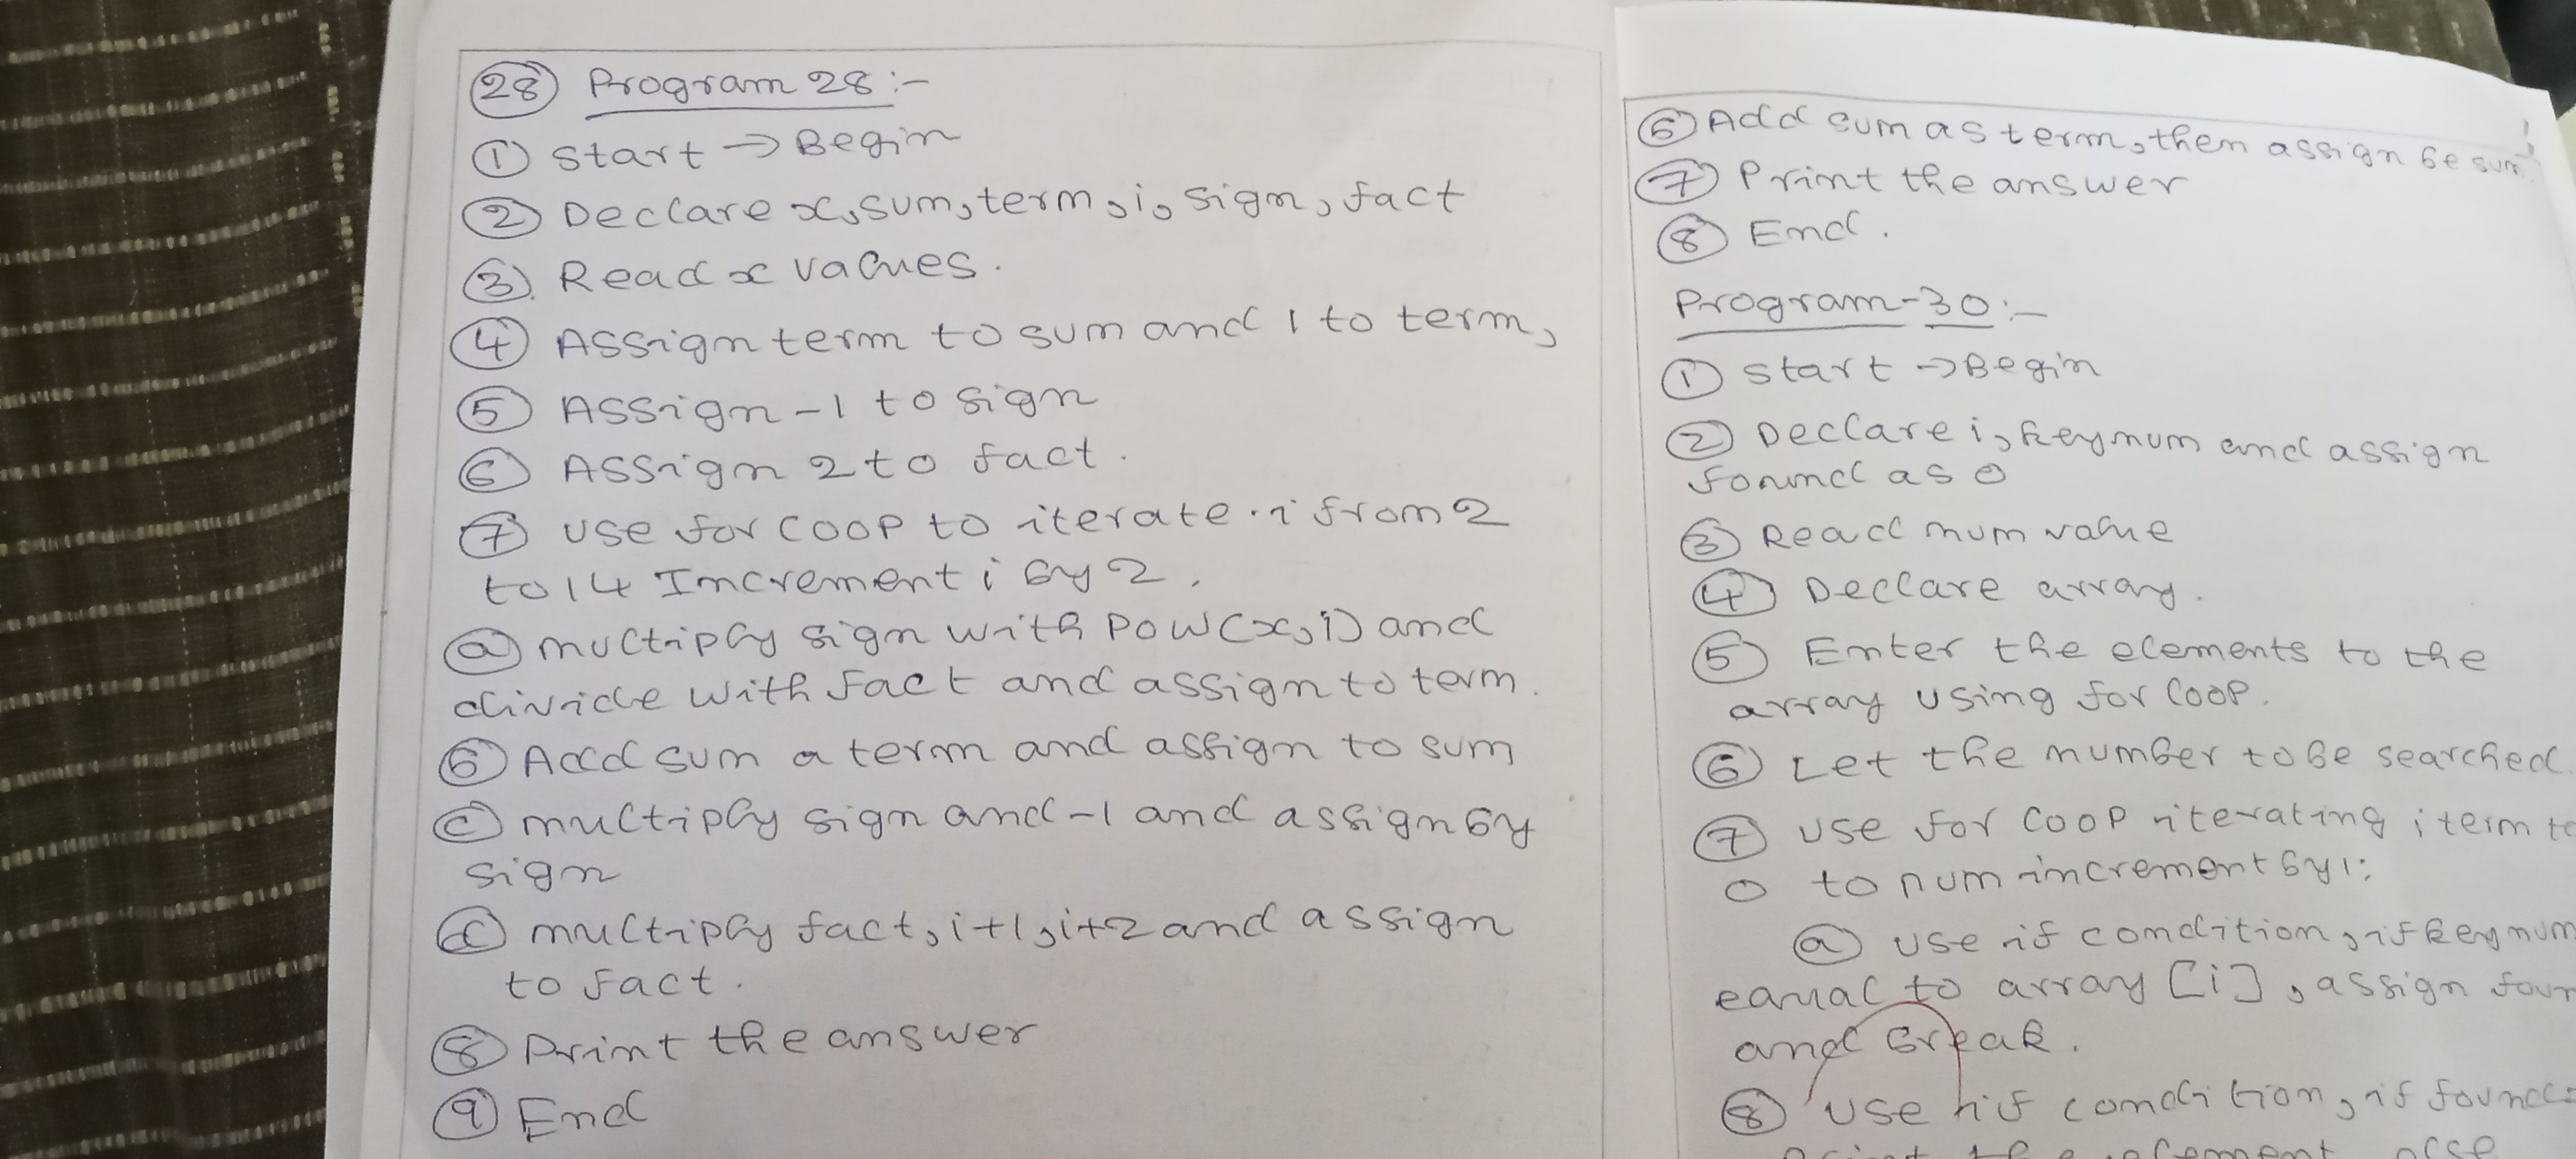 28 Program 28 :-
1 Start → Begin
2 Declare x, sum, term, i, sign, fact
3. Read x values.
4 Assign term to sum and 1 to term,
5 Assign -1 to sign
6 Assign 2 to fact.
7 use for loop to iterate . i from 2
to 14 Increment i by 2.
a multiply sign with pow(x,i) and
divide with fact and assign to term.
b Add sum a term and assign to sum
c multiply sign and -1 and assign by
sign
d multiply fact, i+1, i+2 and assign
to fact.
8 Print the answer
9 End
6 Add sum as term, then assign be sum
7 Print the answer
8 End.
Program-30 :-
1 Start → Begin
2 Declare i, keynum and assign
found as 0
3 Read num value
4 Declare array.
5 Enter the elements to the
array using for loop.
6 Let the number to be searched.
7 use for loop iterating i term to
0 to num increment by 1:
a use if condition, if keynum
equal to array [i], assign foun
and break.
8 use if condition, if found=